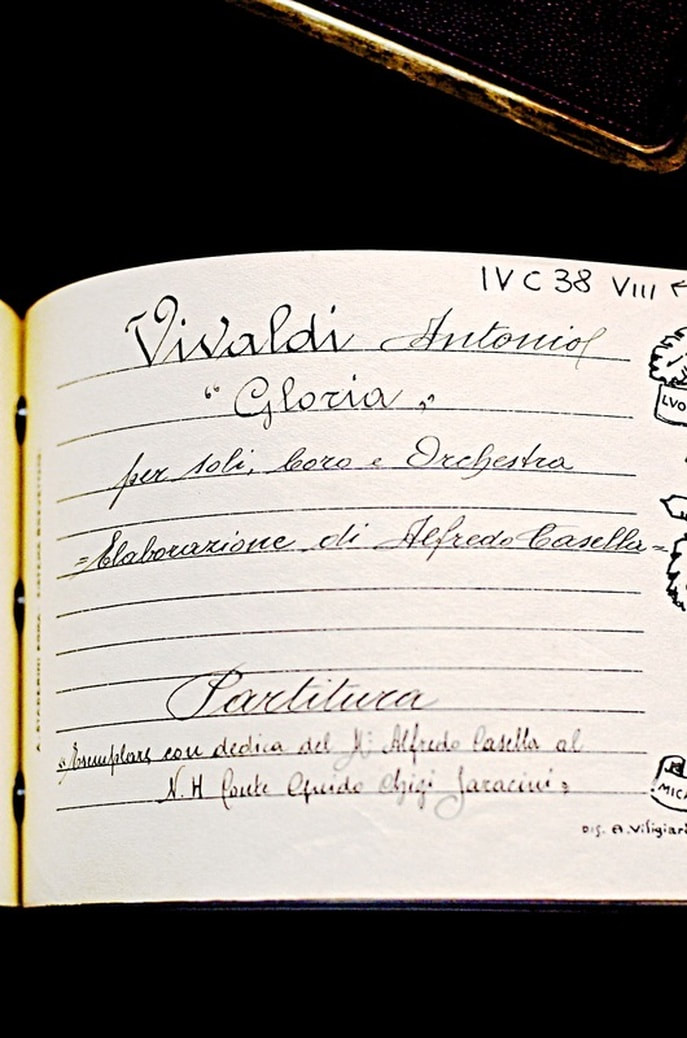 IV C 38 VIII
Vivaldi Antonio
“ Gloria „
per soli, Coro e Orchestra
= Elaborazione di Alfredo Casella =
Partitura
“ Esemplare con dedica del M° Alfredo Casella al
N. H Conte Guido Chigi Saracini „
LVO
MICA
DIS. A. Viligiardi
A. STADERINI ROMA SISTEMA BREVETTATO